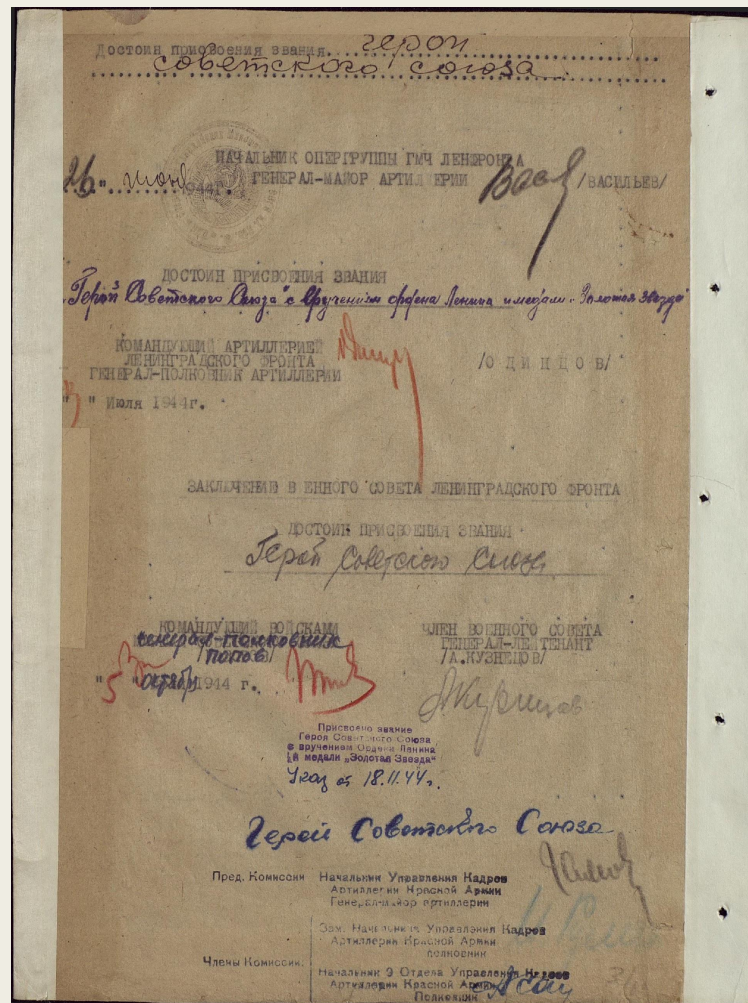 Достоин присвоения звания герой
советского союза
НАЧАЛЬНИК ОПЕРГРУППЫ ГМЧ ЛЕНФРОНТА
26 " июня 1944г. ГЕНЕРАЛ-МАЙОР АРТИЛЛЕРИИ /ВАСИЛЬЕВ/
ДОСТОИН ПРИСВОЕНИЯ ЗВАНИЯ
"Герой Советского Союза" с вручением ордена Ленина и медали "Золотая звезда"
КОМАНДУЮЩИЙ АРТИЛЛЕРИЕЙ
ЛЕНИНГРАДСКОГО ФРОНТА
ГЕНЕРАЛ-ПОЛКОВНИК АРТИЛЛЕРИИ /ОДИНЦОВ/
" " Июля 1944г.
ЗАКЛЮЧЕНИЕ В ЕННОГО СОВЕТА ЛЕНИНГРАДСКОГО ФРОНТА
ДОСТОИН ПРИСВОЕНИЯ ЗВАНИЯ
Герой Советского Союза
КОМАНДУЮЩИЙ ВОЙСКАМИ ЧЛЕН ВОЕННОГО СОВЕТА
генерал-полковник ГЕНЕРАЛ-ЛЕЙТЕНАНТ
/ПОПОВ/ /А.КУЗНЕЦОВ/
"5" октября 1944 г. АКузнецов
Присвоено звание
Героя Советского Союза
с вручением Ордена Ленина
и медали „Золотая Звезда"
Указ от 18.11.44г.
Герой Советского Союза
Пред. Комиссии Начальник Управления Кадров
Артиллерии Красной Армии
Генерал-майор артиллерии
Зам. Начальника Управления Кадров
Артиллерии Красной Армии
полковник
Члены Комиссии: Начальник 9 Отдела Управления Кадров
Артиллерии Красной Армии
Полковник